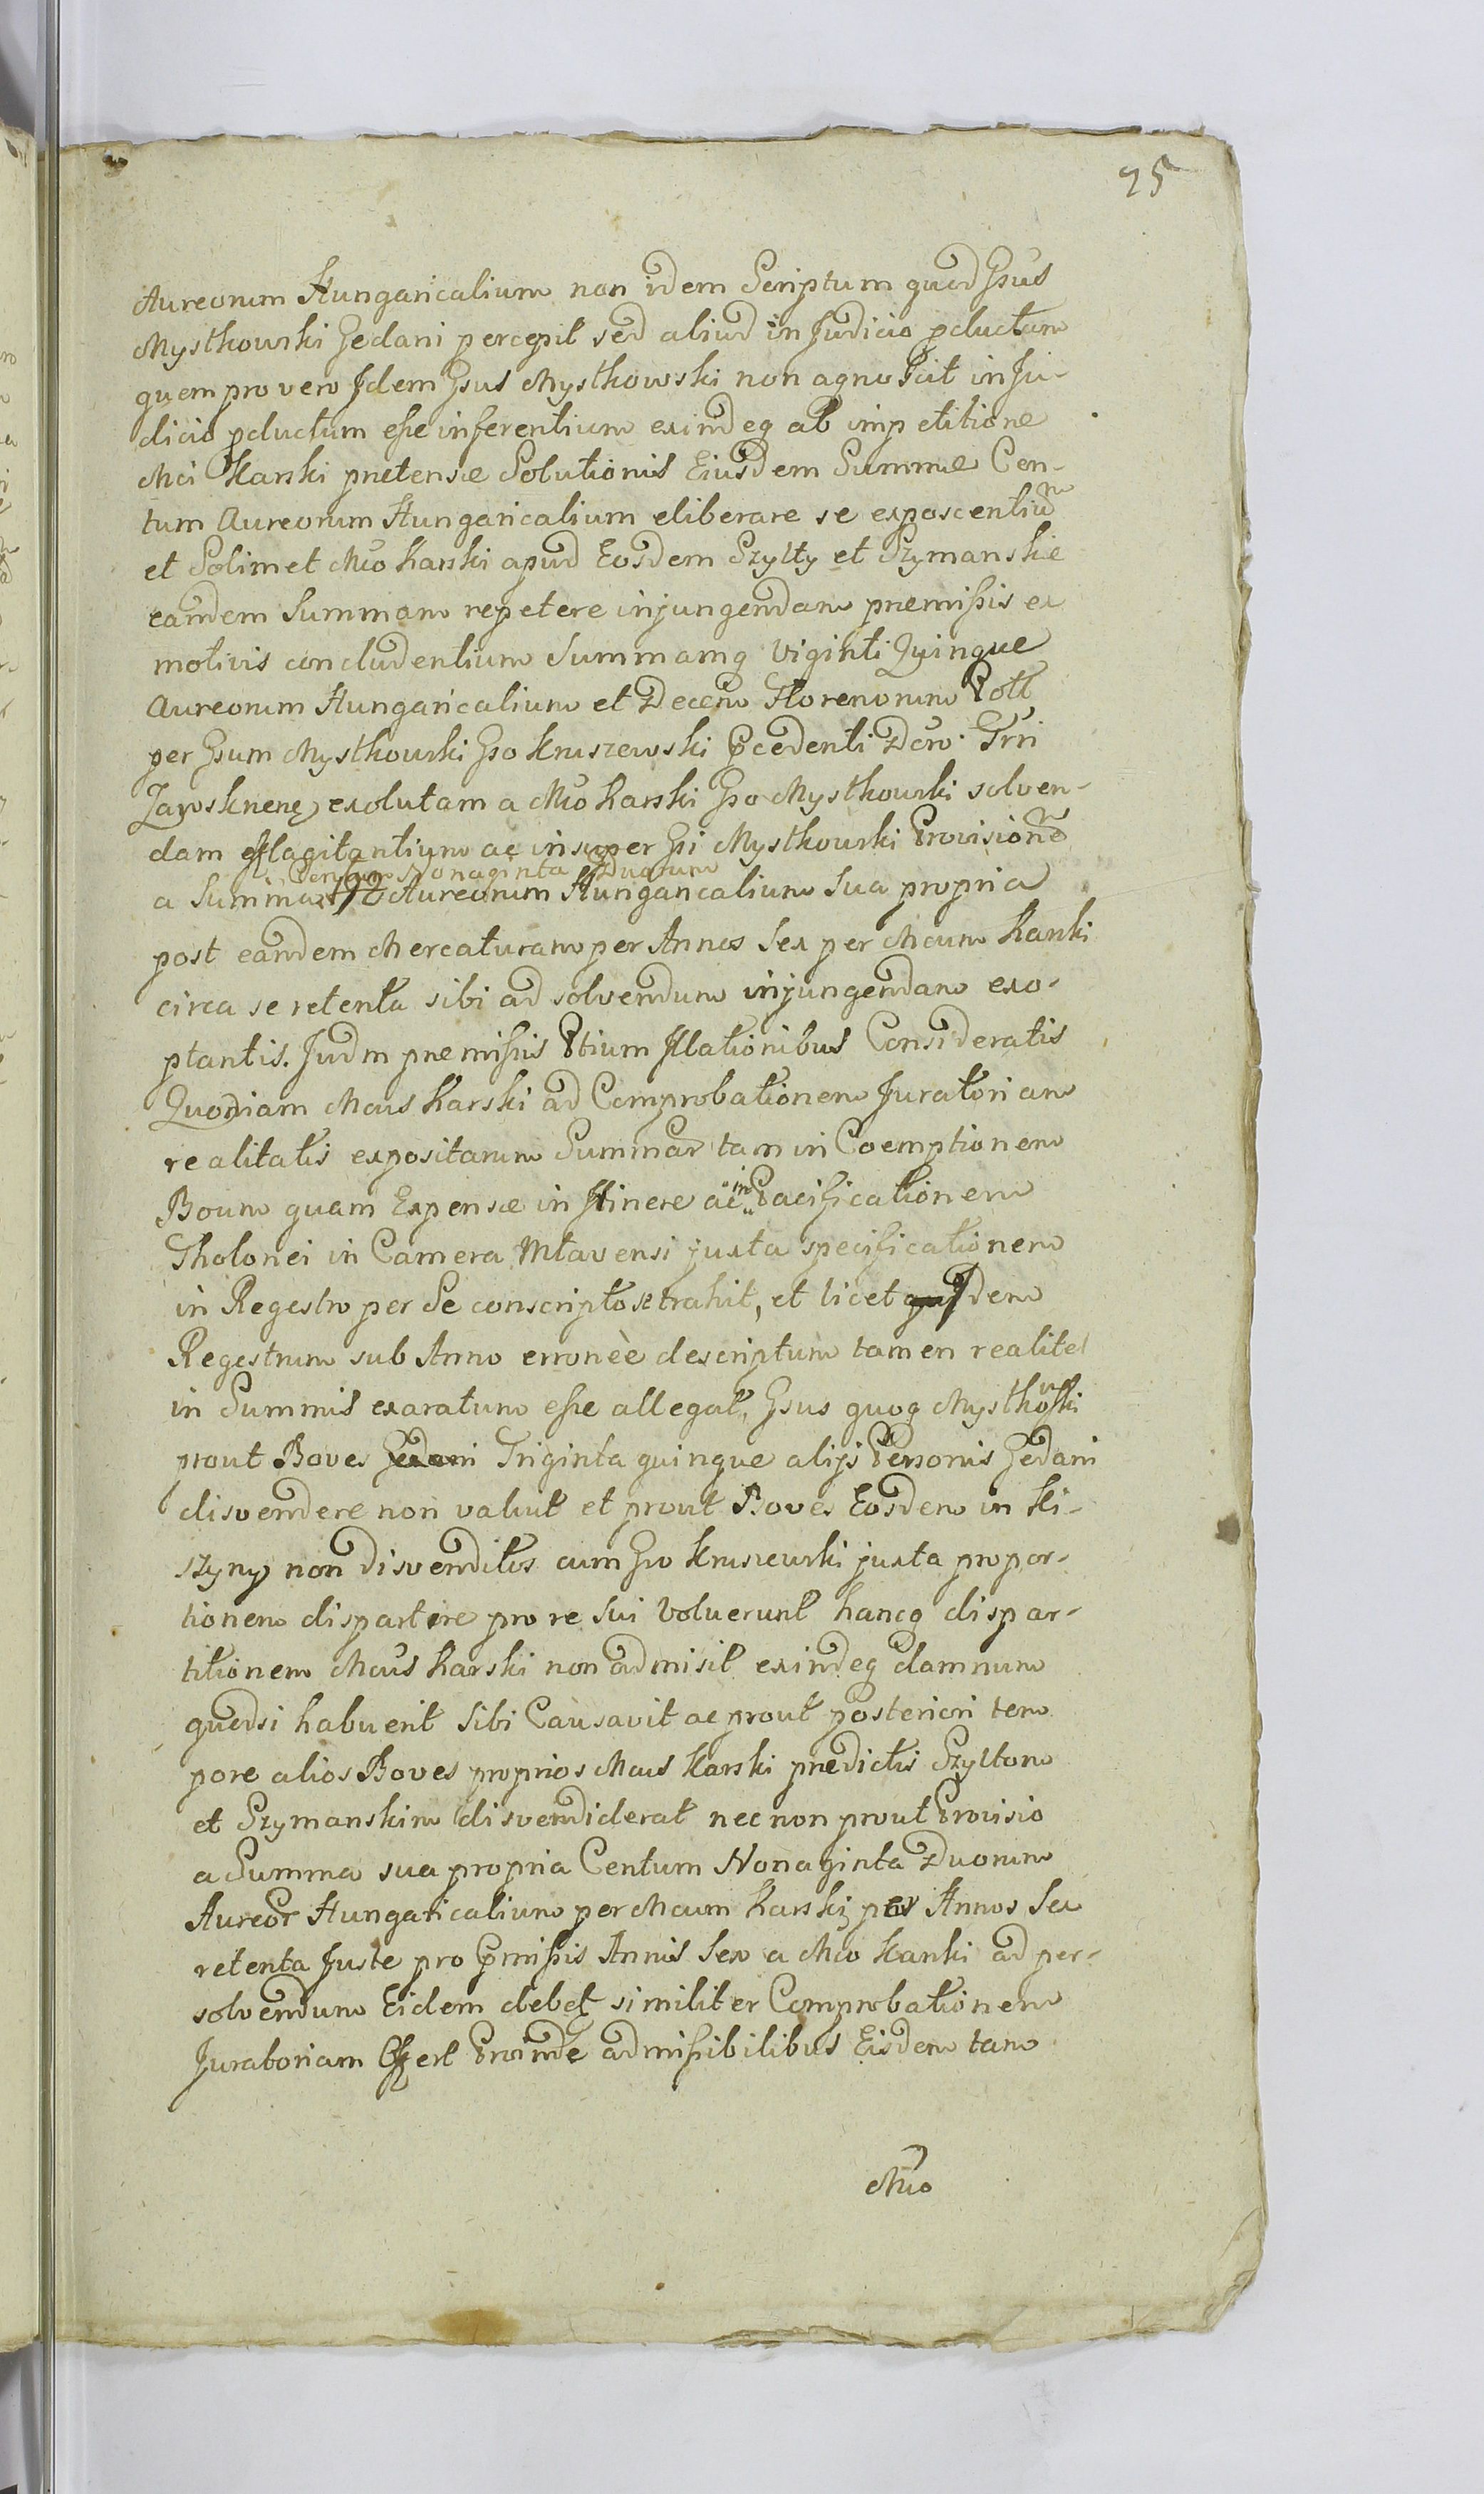 25
Aureorum Hungaricalium non idem Scriptum quod Gsus
Mysthowski Gedani percepit sed aliud in Judicio pductum
quem pro vero Idem Gsus Mysthowski non agnoscit in Ju-
dicio pductum esse inferentium exindeq ab impetitione
Mci Karski prætensæ Solutionis Eiusdem Summæ Cen-
tum Aureorum Hungaricalium eliberare se exposcentium
et Solimet Mco Karski apud Eosdem Szylty et Szymanskie
eandem Summam repetere injungendam præmissis ex
motivis concludentium Summamq Viginti Quinque
Aureorum Hungaricalium et Decem Florenorum Poll
per Gsum Mysthowski Gso Kruszewski Pcedenti Dcro Trri
exolutam a Mco Karski Gso Mysthowski solven-
dam efflagitantium ac insuper Gsi Mysthowski Provisione
Centum Nonaginta Duorum
a Summa 192 Aureorum Hungaricalium Sua propria
post eandem Mercaturam per Annos Sex per Mcum Karski
circa se retenta sibi ad solvendum injungendam exo-
ptantis. Judm præmissis Ptium Illationibus Consideratis
Quoniam Mcus Karski ad Comprobationem Juratoriam
realitatis expositarum Summar tam in Coemptionem
Boum quam Expensæ in Itinere ac in Pacificationem
Tholonei in Camera Mlavensi juxta specificationem
in Regestro per Se conscripto se trahit, et licet Idem
Regestrum sub Anno erroneè descriptum tamen realitel
in Summis exaratum esse allegat, Gsus quoq Mysthowski
prout Boves Gedani Triginta quinque alijs Personis Gedani
disvendere non valuit et prout Boves Eosdem in Ki-
szyny non disvenditos cum Gso Kruszewski juxta propor-
tionem dispartire pro re sui Voluerunt hancq dispar-
titionem Mcus Karski non admisit exindeq damnum
quodsi habuerit Sibi Causavit ac prout posteriori tem
pore alios Boves proprios Mcus Karski prædictis Szyltom
et Szymanskim disvendiderat nec non prout Provisio
a Summa sua propria Centum Nonaginta Duorum
Aureor Hungaricalium per Mcum Karski per Annos Sex
retenta Juste pro Pmissis Annis Sex a Mco Karski ad per-
solvendum Eidem debet similiter Comprobationem
Juratoriam Offert Proinde admissibilibus Eisdem tam
Mco